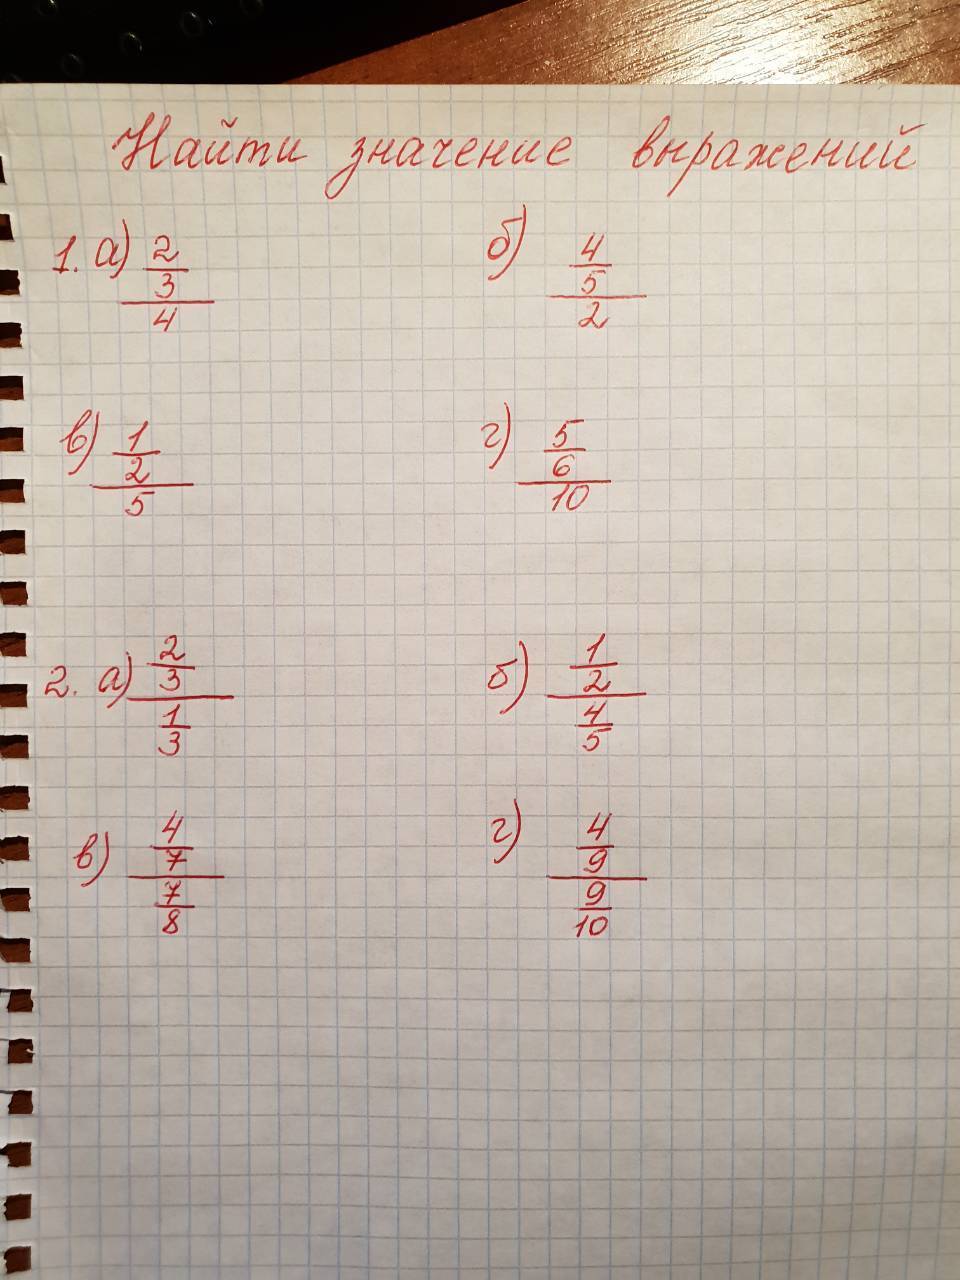 Найти значение выражений
1. а) 2/3/4 б) 4/5/2
в) 1/2/5 г) 5/6/10
2. а) 2/3/1/3 б) 1/2/4/5
в) 4/7/7/8 г) 4/9/9/10